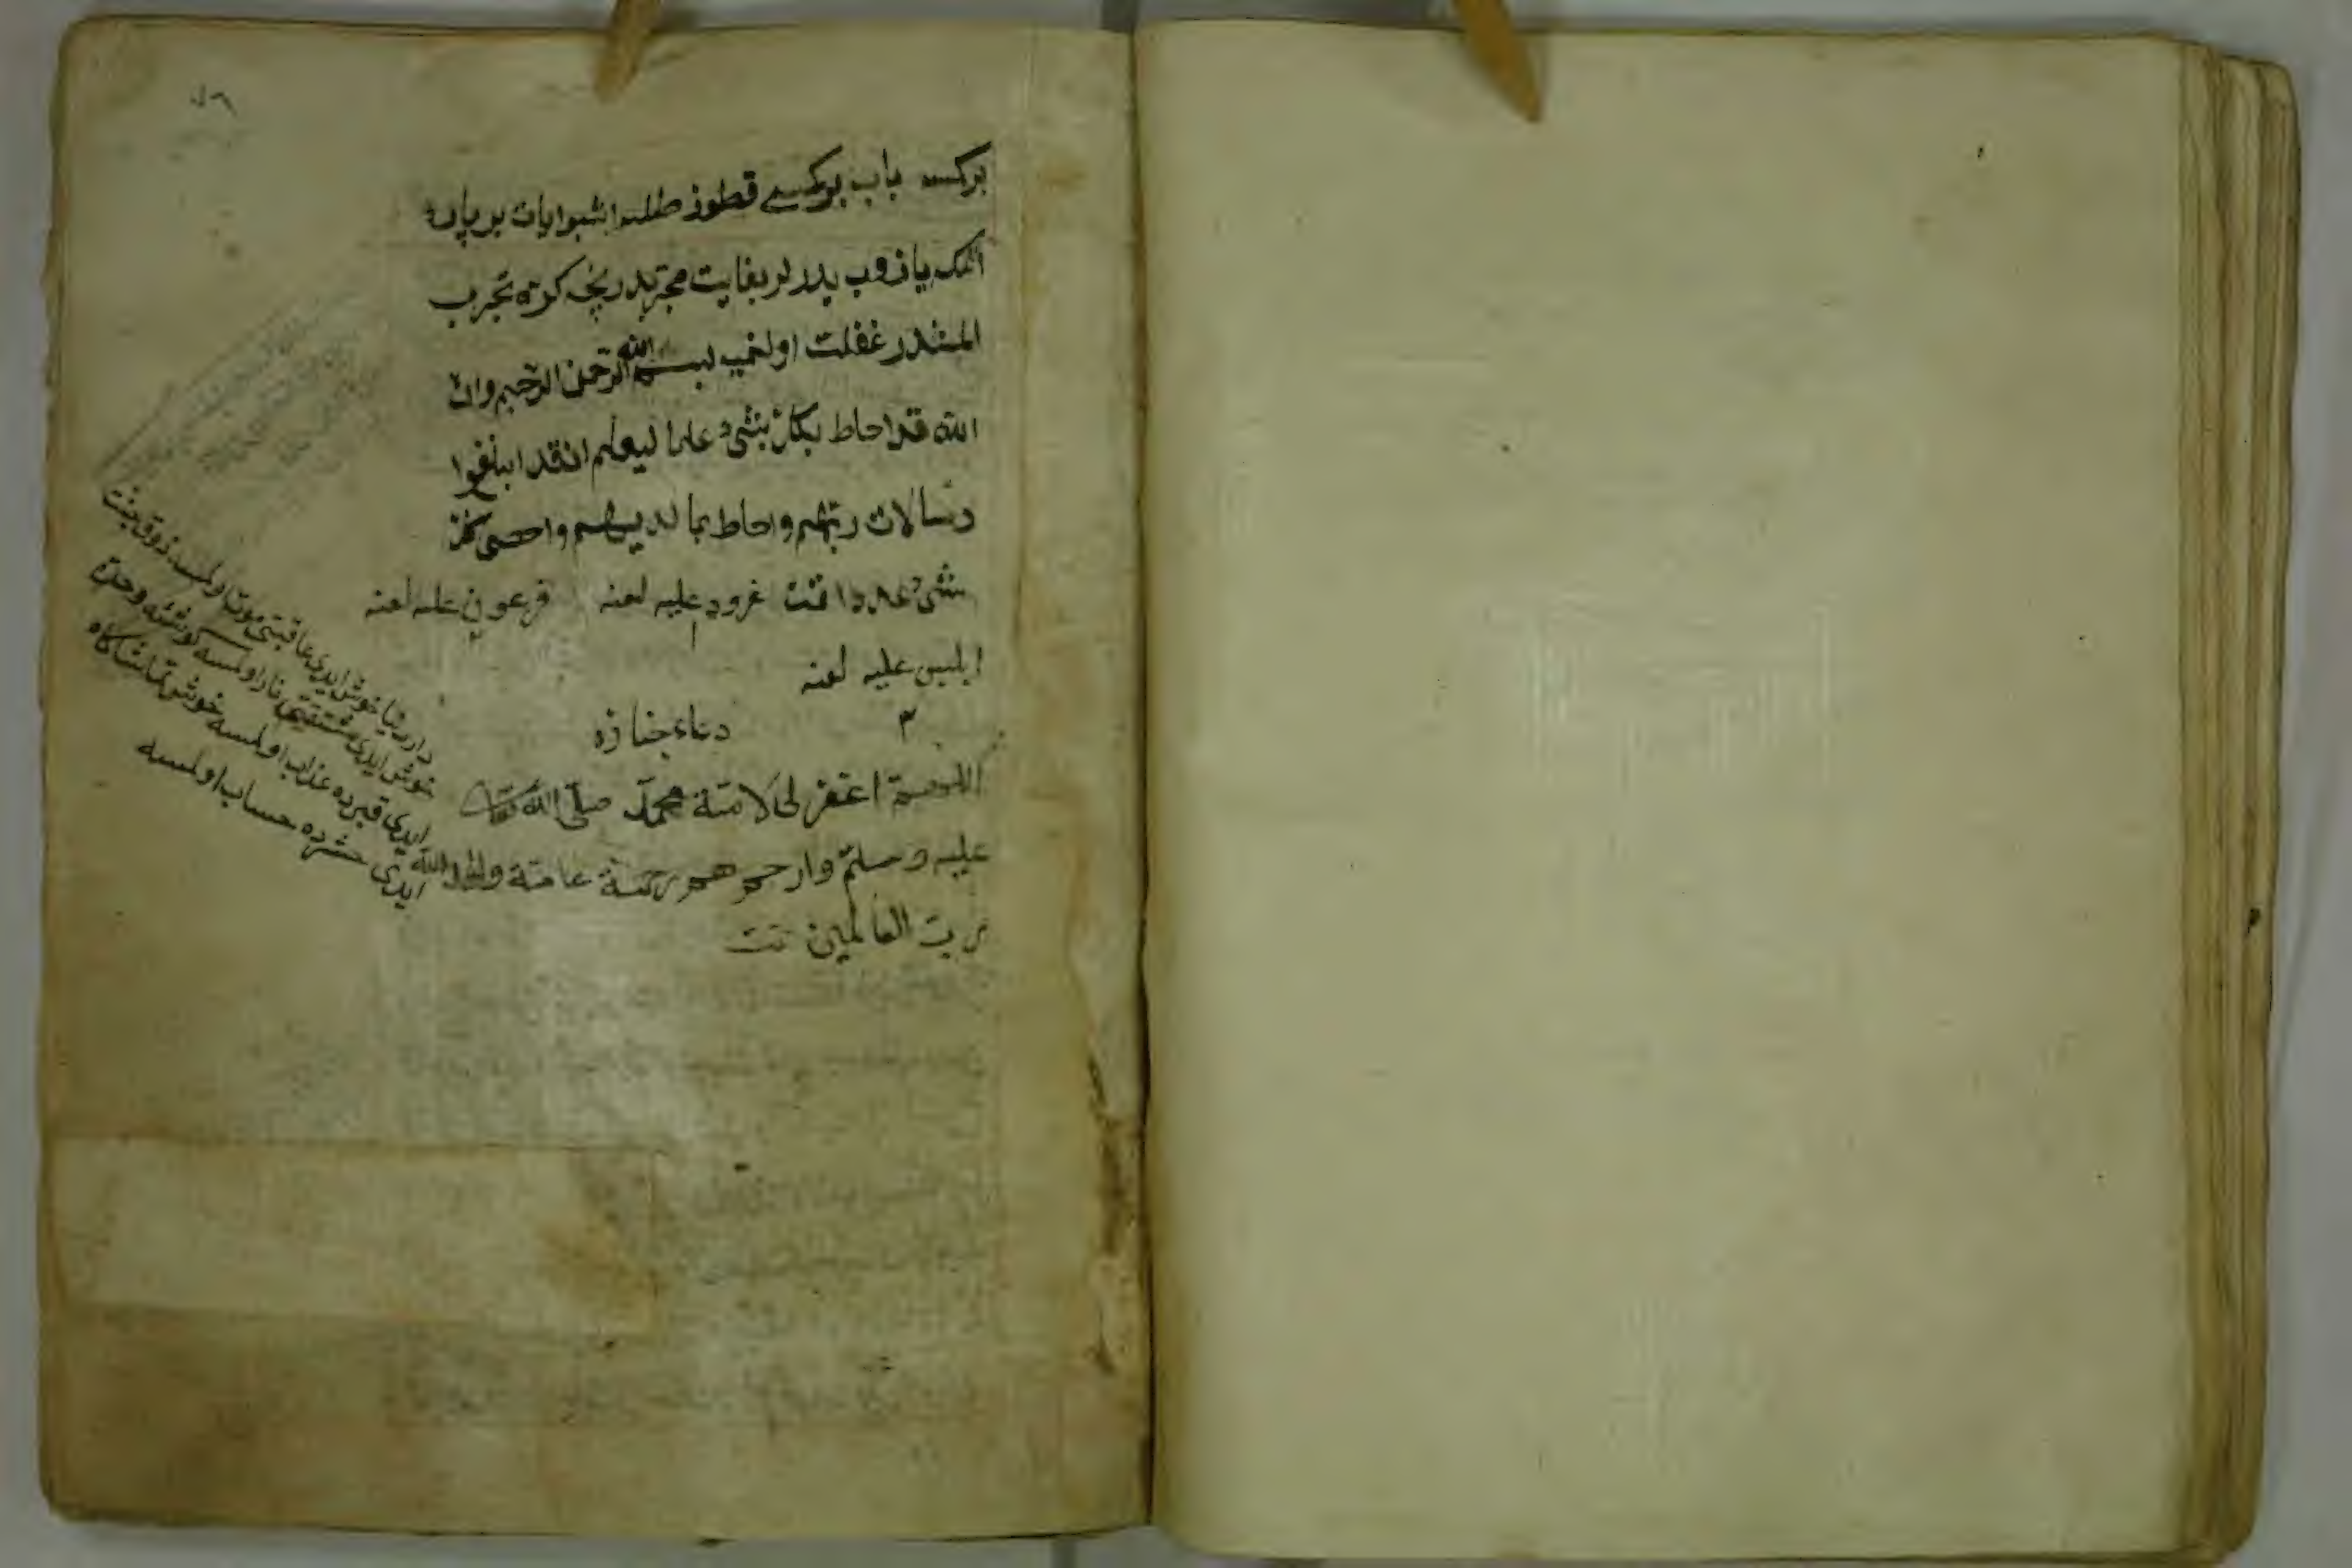 بركسه باب بركسى قطوز طلسه اشبو ايات بر پاره
اتمك يازوب يدرلر بغايت مجربدر نچه كره تجرب
المشدر غفلت اولنميه بسم الله الرحمن الرحيم وان
الله قد احاط بكل شىء علما ليعلم ان قد ابلغوا
رسالات ربهم واحاط بما لديهم واحصى كل
شىء عددا تمت نمرود عليه لعنه فرعون عليه لعنه
ابليس عليه لعنه
٣ دعاء جنازه
اللهم اغفر لحى لامة محمد صلى الله تعالى
عليه وسلم وارحمهم رحمة عامة والحمد لله
رب العالمين تمت
دار دنيا خوش ايدى عاقبتى موت اولمسه ذوق جنت
خوش ايدى مشتقتى نار اولمسه كوشه وحدة
ايدى قبرده عذاب اولمسه خوش تماشاكاه
ايدى حشرده حساب اولمسه